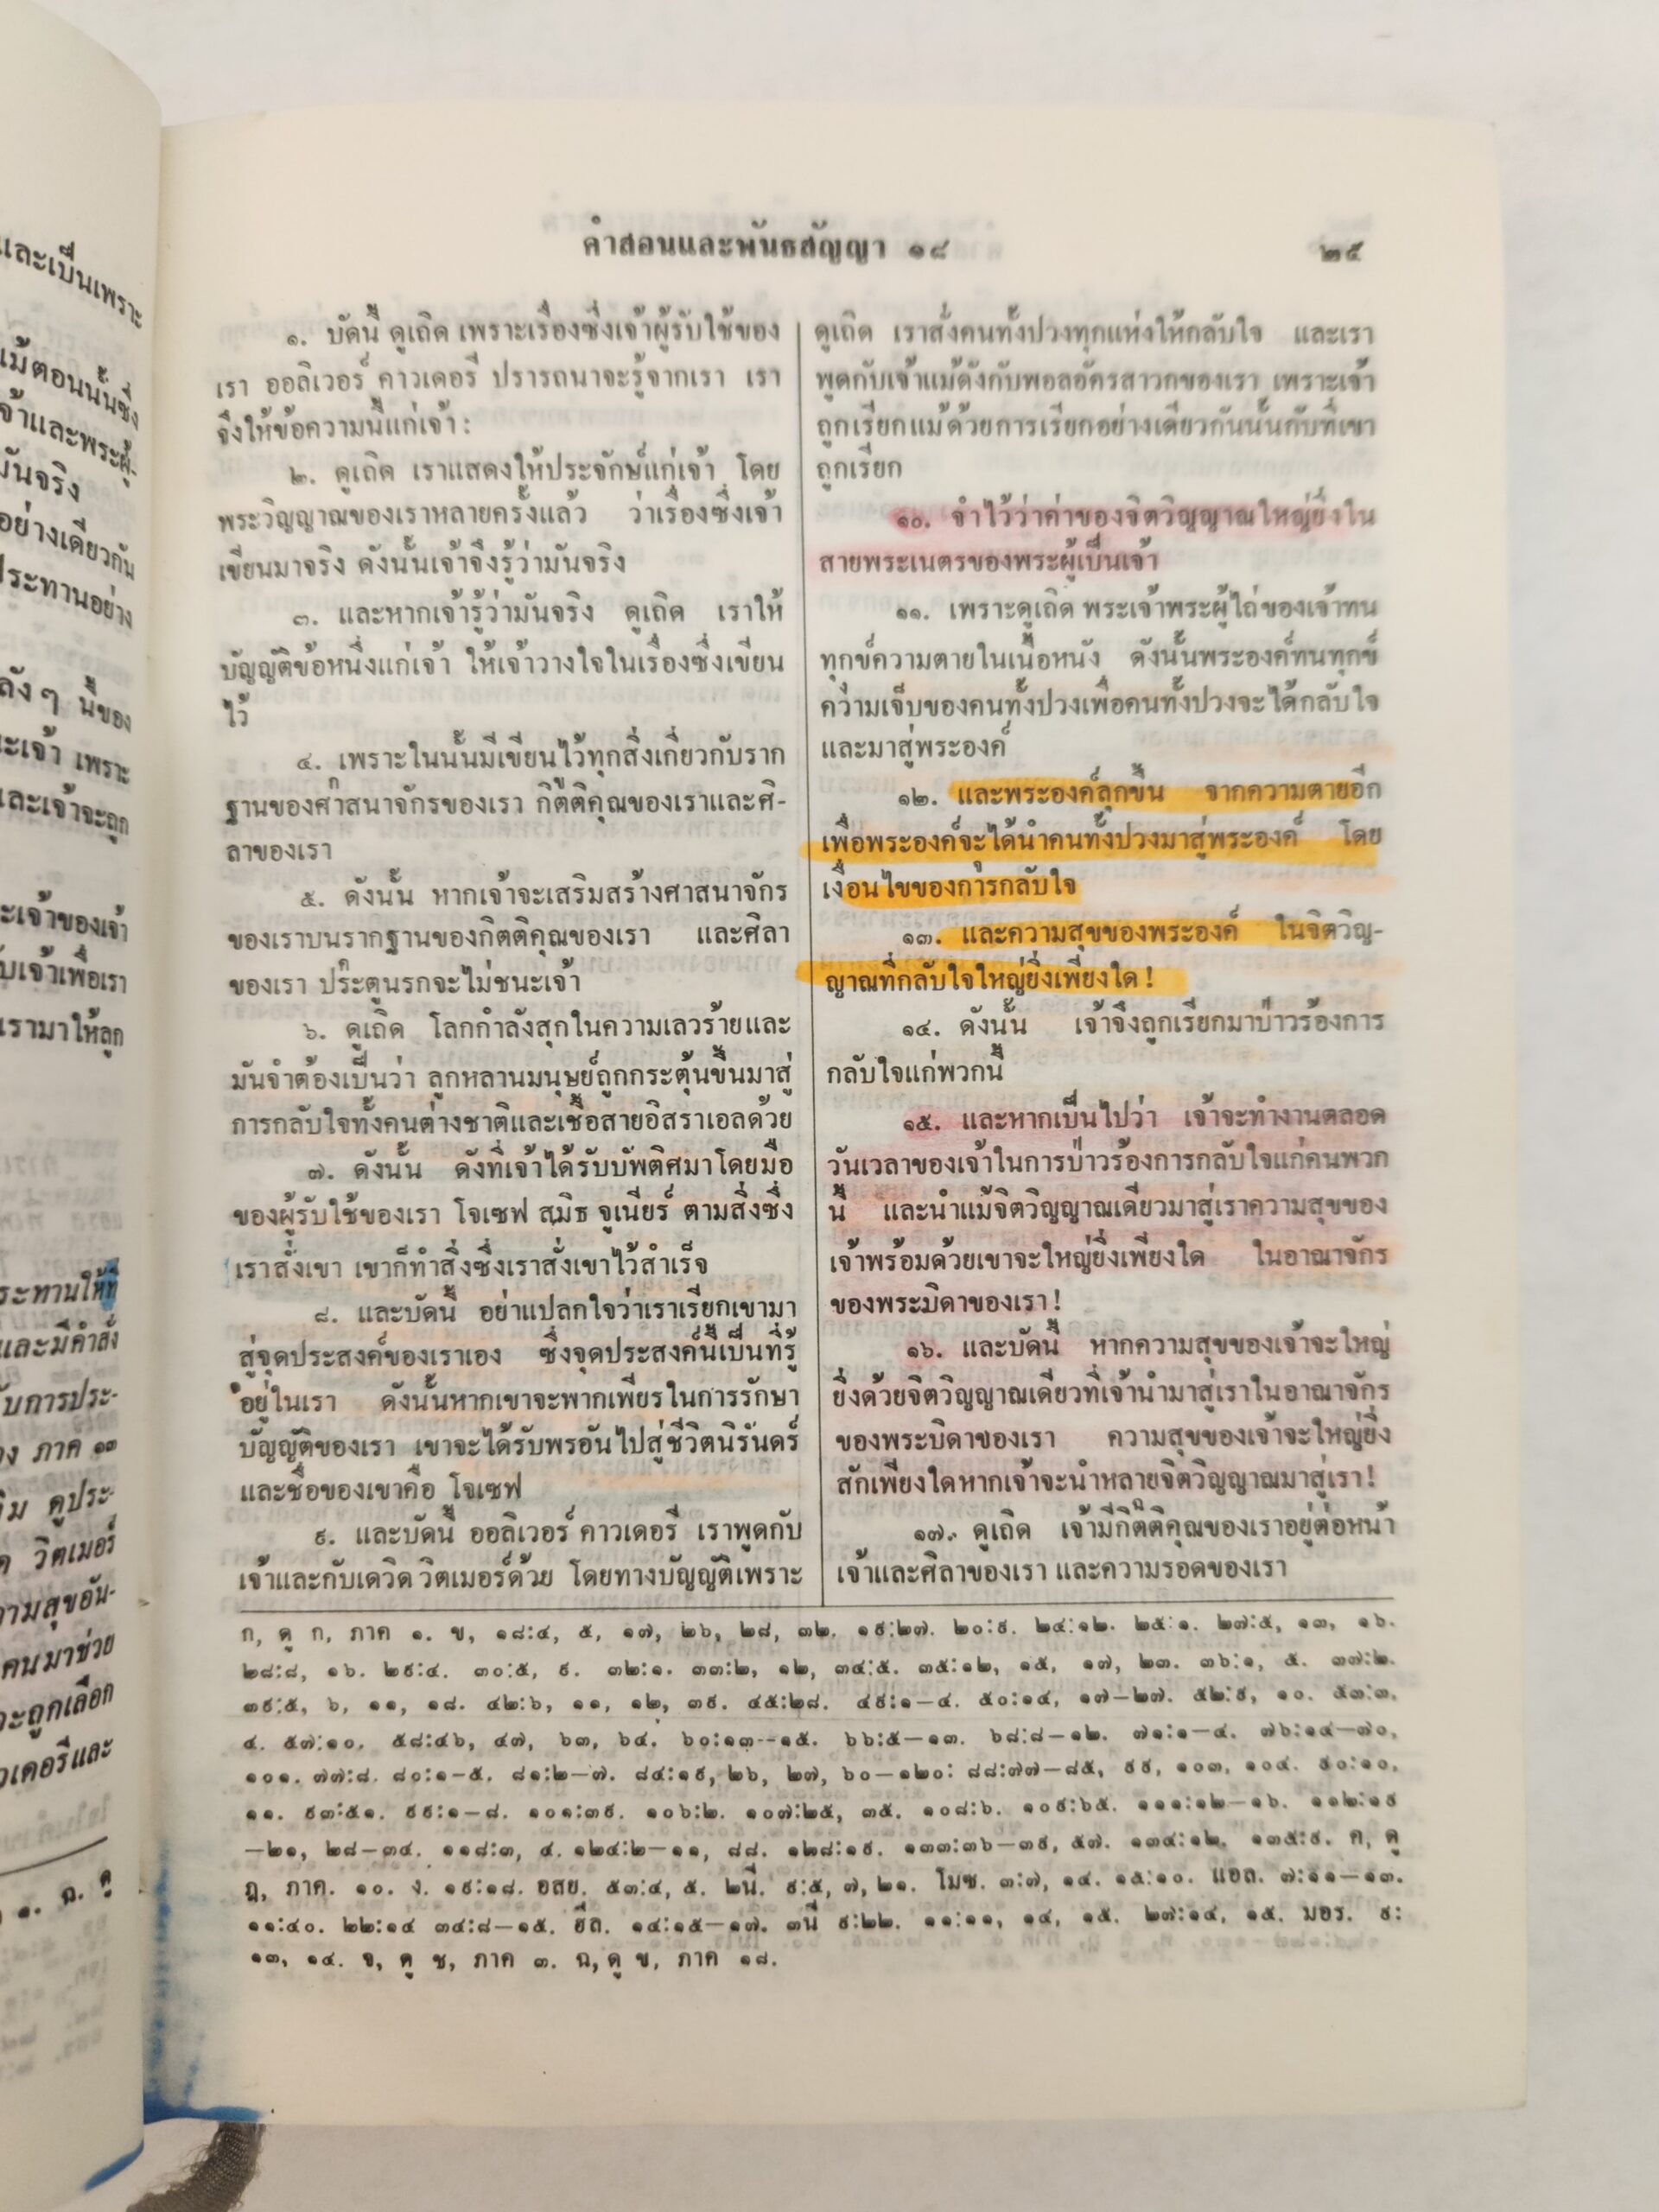 และเป็นเพราะ
คำสอนและพันธสัญญา ๑๘
๒๕
๑. บัดนี้ ดูเถิด เพราะเรื่องซึ่งเจ้าผู้รับใช้ของ
เรา ออลิเวอร์ คาวเดอรี ปรารถนาจะรู้จากเรา เรา
จึงให้ข้อความนี้แก่เจ้า:
๒. ดูเถิด เราแสดงให้ประจักษ์แก่เจ้า โดย
พระวิญญาณของเราหลายครั้งแล้ว ว่าเรื่องซึ่งเจ้า
เขียนมาจริง ดังนั้นเจ้าจึงรู้ว่ามันจริง
๓. และหากเจ้ารู้ว่ามันจริง ดูเถิด เราให้
บัญญัติข้อหนึ่งแก่เจ้า ให้เจ้าวางใจในเรื่องซึ่งเขียน
ไว้
๔. เพราะในนั้นมีเขียนไว้ทุกสิ่งเกี่ยวกับราก
ฐานของศาสนาจักรของเรา กิตติคุณของเราและศิ-
ลาของเรา
๕. ดังนั้น หากเจ้าจะเสริมสร้างศาสนาจักร
ของเราบนรากฐานของกิตติคุณของเรา และศิลา
ของเรา ประตูนรกจะไม่ชนะเจ้า
๖. ดูเถิด โลกกำลังสุกในความเลวร้ายและ
มันจำต้องเป็นว่า ลูกหลานมนุษย์ถูกกระตุ้นขึ้นมาสู่
การกลับใจทั้งคนต่างชาติและเชื้อสายอิสราเอลด้วย
๗. ดังนั้น ดังที่เจ้าได้รับบัพติศมาโดยมือ
ของผู้รับใช้ของเรา โจเซฟ สมิธ จูเนียร์ ตามสิ่งซึ่ง
เราสั่งเขา เขาก็ทำสิ่งซึ่งเราสั่งเขาไว้สำเร็จ
๘. และบัดนี้ อย่าแปลกใจว่าเราเรียกเขามา
สู่จุดประสงค์ของเราเอง ซึ่งจุดประสงค์นี้เป็นที่รู้
อยู่ในเรา ดังนั้นหากเขาจะพากเพียรในการรักษา
บัญญัติของเรา เขาจะได้รับพรอันไปสู่ชีวิตนิรันดร์
และชื่อของเขาคือ โจเซฟ
๙. และบัดนี้ ออลิเวอร์ คาวเดอรี เราพูดกับ
เจ้าและกับเดวิด วิตเมอร์ด้วย โดยทางบัญญัติเพราะ
ดูเถิด เราสั่งคนทั้งปวงทุกแห่งให้กลับใจ และเรา
พูดกับเจ้าแม้ดังกับพอลอัครสาวกของเรา เพราะเจ้า
ถูกเรียกแม้ด้วยการเรียกอย่างเดียวกันนั้นกับที่เขา
ถูกเรียก
๑๐. จำไว้ว่าค่าของจิตวิญญาณใหญ่ยิ่งใน
สายพระเนตรของพระผู้เป็นเจ้า
๑๑. เพราะดูเถิด พระเจ้าพระผู้ไถ่ของเจ้าทน
ทุกข์ความตายในเนื้อหนัง ดังนั้นพระองค์ทนทุกข์
ความเจ็บของคนทั้งปวงเพื่อคนทั้งปวงจะได้กลับใจ
และมาสู่พระองค์
๑๒. และพระองค์ลุกขึ้น จากความตายอีก
เพื่อพระองค์จะได้นำคนทั้งปวงมาสู่พระองค์ โดย
เงื่อนไขของการกลับใจ
๑๓. และความสุขของพระองค์ ในจิตวิญ-
ญาณที่กลับใจใหญ่ยิ่งเพียงใด!
๑๔. ดังนั้น เจ้าจึงถูกเรียกมาป่าวร้องการ
กลับใจแก่พวกนี้
๑๕. และหากเป็นไปว่า เจ้าจะทำงานตลอด
วันเวลาของเจ้าในการป่าวร้องการกลับใจแก่คนพวก
นี้ และนำแม้จิตวิญญาณเดียวมาสู่เราความสุขของ
เจ้าพร้อมด้วยเขาจะใหญ่ยิ่งเพียงใด ในอาณาจักร
ของพระบิดาของเรา!
๑๖. และบัดนี้ หากความสุขของเจ้าจะใหญ่
ยิ่งด้วยจิตวิญญาณเดียวที่เจ้านำมาสู่เราในอาณาจักร
ของพระบิดาของเรา ความสุขของเจ้าจะใหญ่ยิ่ง
สักเพียงใดหากเจ้าจะนำหลายจิตวิญญาณมาสู่เรา!
๑๗. ดูเถิด เจ้ามีกิตติคุณของเราอยู่ต่อหน้า
เจ้าและศิลาของเรา และความรอดของเรา
ก, ดู ก, ภาค ๑. ข, ๑๘:๔, ๕, ๑๗, ๒๖, ๒๘, ๓๒. ๑๙:๒๗. ๒๐:๙. ๒๔:๑๒. ๒๕:๑. ๒๗:๕, ๑๓, ๑๖.
๒๘:๘, ๑๖. ๒๙:๔. ๓๐:๕, ๙. ๓๒:๑. ๓๓:๒, ๑๒, ๓๔:๕. ๓๕:๑๒, ๑๕, ๑๗, ๒๓. ๓๖:๑, ๕. ๓๗:๒.
๓๙:๕, ๖, ๑๑, ๑๘. ๔๒:๖, ๑๑, ๑๒, ๓๙. ๔๕:๒๘. ๔๙:๑—๔. ๕๐:๑๔, ๑๗—๒๗. ๕๒:๙, ๑๐. ๕๓:๓,
๔. ๕๗:๑๐. ๕๘:๔๖, ๔๗, ๖๓, ๖๔. ๖๐:๑๓—๑๕. ๖๖:๕—๑๓. ๖๘:๘—๑๒. ๗๑:๑—๔. ๗๖:๑๔—๗๐,
๑๐๑. ๗๗:๘. ๘๐:๑—๕. ๘๑:๒—๗. ๘๔:๑๙, ๒๖, ๒๗, ๖๐—๑๒๐: ๘๘:๗๗—๘๕, ๙๙, ๑๐๓, ๑๐๔. ๙๐:๑๐,
๑๑. ๙๓:๕๑. ๙๙:๑—๘. ๑๐๑:๓๙. ๑๐๖:๒. ๑๐๗:๒๕, ๓๕. ๑๐๘:๖. ๑๐๙:๖๕. ๑๑๑:๑๒—๑๖. ๑๑๒:๑๙
—๒๑, ๒๘—๓๔. ๑๑๘:๓, ๔. ๑๒๔:๒—๑๑, ๘๘. ๑๒๘:๑๙. ๑๓๓:๓๖—๓๙, ๕๗. ๑๓๔:๑๒. ๑๓๕:๙. ค, ดู
ฎ, ภาค. ๑๐. ง. ๑๙:๑๘. อสย. ๕๓:๔, ๕. ๒นี. ๙:๕, ๗, ๒๑. โมซ. ๓:๗, ๑๔. ๑๕:๑๐. แอล. ๗:๑๑—๑๓.
๑๑:๔๐. ๒๒:๑๔ ๓๔:๘—๑๕. ฮีล. ๑๔:๑๕—๑๗. ๓นี ๙:๒๒. ๑๑:๑๑, ๑๔, ๑๕. ๒๗:๑๔, ๑๕. มอร. ๙:
๑๓, ๑๔. จ, ดู ช, ภาค ๓. ฉ, ดู ข, ภาค ๑๘.